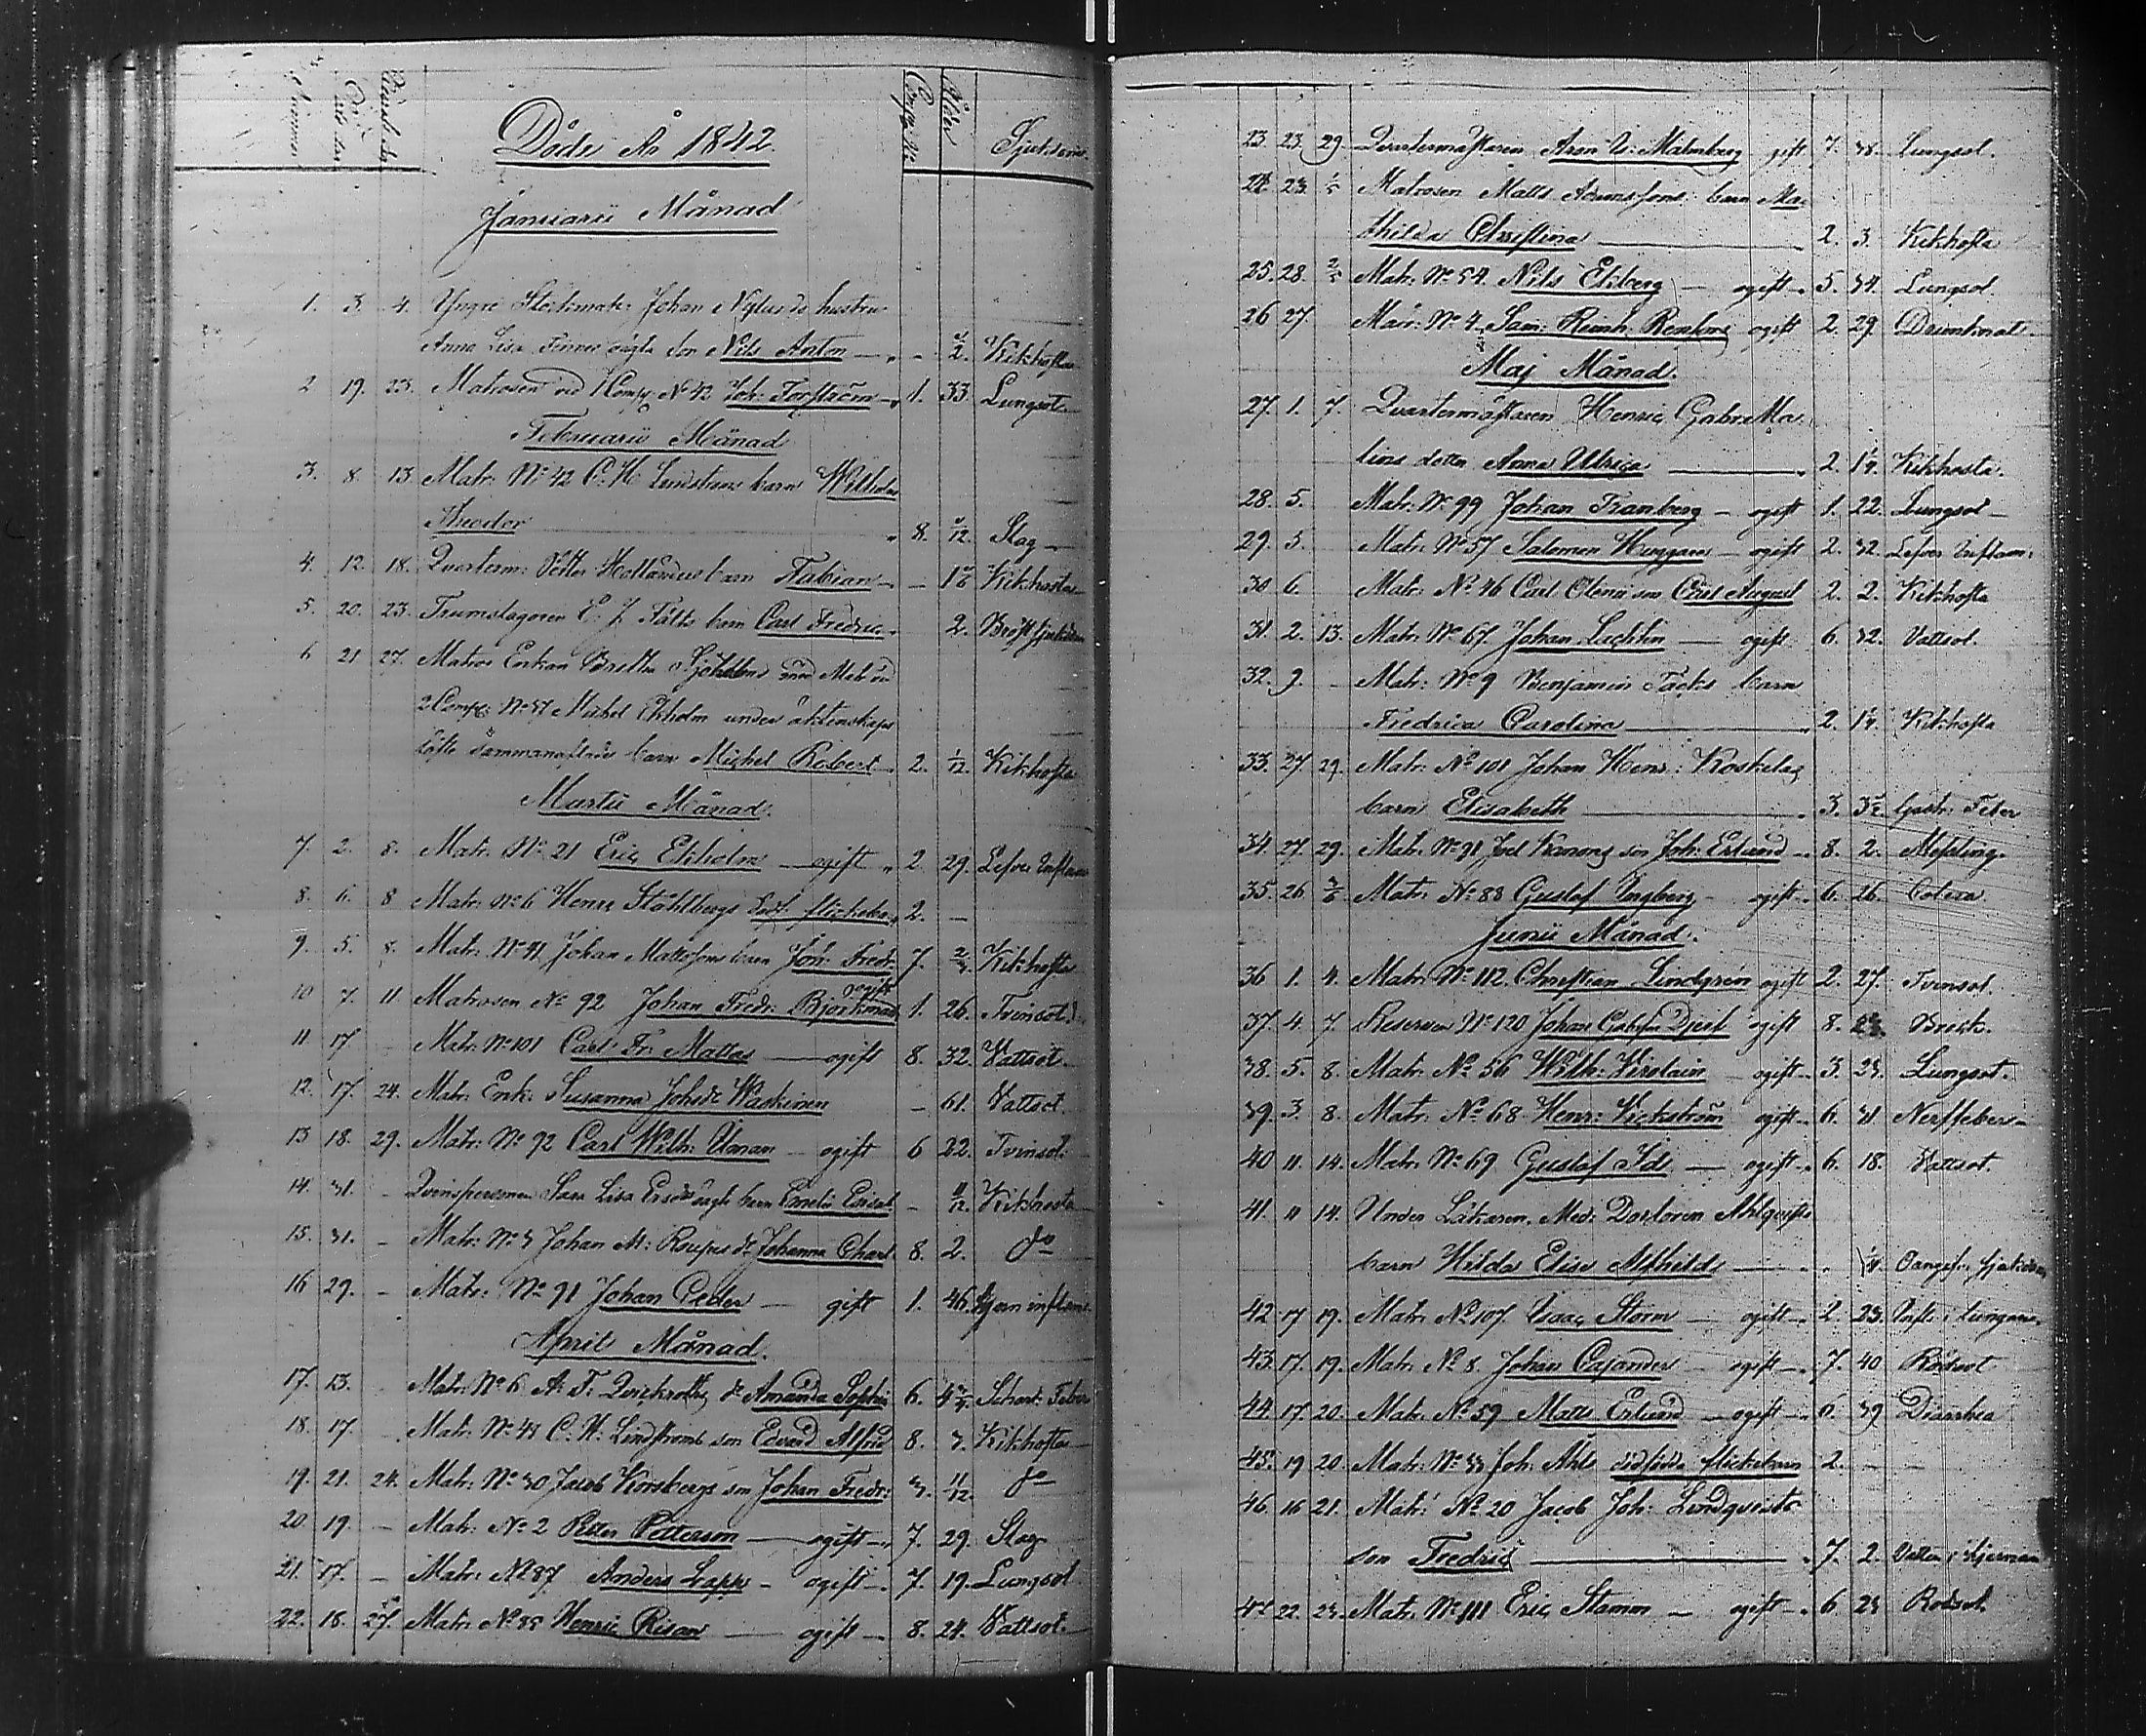 Nummer
Död den
Begrafd den
Döde År 1842.
Comp. No
Ålder
Sjukdom
Januarii Månad
1. 3. 4. Yngre Johan Nylunds hustru
Anna Lisa ägta son Nils Anton — Kikhosta
2 19. 23. Matrosen vid 1 Comp. No 42 Joh: Forsström — 1. 33. Lungsot
Februarii Månad
3. 8. 13. Matr. No 42 C. H. Lindströms barn Wilhelm
Theodor 8. Slag
4. 12. 18. Qvarterm: Petter barn Fabian — Kikhosta
5. 20. 23. Trumslagaren E. J. Fälts barn Carl Fredric 2. Bröst sjukdom
6 21 27. Matros Enkan Sjöholms med Matr. vid
2 Comp: No 37 Michel Ekholm under äktenskaps
löfte sammanaflade barn Michel Robert 2. 1/12. Kikhosta
Martii Månad.
7. 2. 8. Matr. No 21 Eric Ekholm — ogift 2 29. Lefver Inflam
8. 6. 8 Matr: No 6 Henr. Ståhlbergs flickebarn 2. —
9. 5. 8. Matr. No 41 Johan Mattssons barn Joh: Fredr: 7. 2/3 Kikhosta
10 7. 11 Matrosen No 92 Johan Fredr: Björkman ogift 1. 26. Tvinsot
11 17 – Matr: No 101 Carl Fr: Mattas — ogift 8. 32. Vattsot
12. 17. 24. Matr: Enk: Susanna Johsdr Waskinen – 61. Vattsot
13 18. 29. Matr: No 92 Carl Wilh: Uman — ogift 6 22. Tvinsot
14. 31. – Qvinspersonen Sara Lisa Ersdrs barn – 11/12. Kikhosta
15. 31. – Matr: No 3 Johan M: dr Johanna Charl. 8. 2. do
16 29. – Matr: No 91 Johan Ceder — gift 1. 46. Hjern inflam
April Månad.
17. 13. Matr: No 6 A. F. dr Amanda Sophia 6. Scharl: Feber
18. 17. Matr: No 43 C. H: Lindströms son Edvard Alfrid 8. 3. Kikhosta
19. 21. 24. Matr: No 30 Jacob Korsbergs son Johan Fredr: 3. 11/12. do
20 19. — Matr. No 2 Petter Petterson — ogift — 7. 29. Slag
21. 17. — Matr: No 87 Anders Lapp – ogift — 7. 19. Lungsot
22. 18. 27. Matr: No 35 Henric Risan — ogift — 8. 24. Vattsot
23. 23. 29. Qvartermästaren Aron U: Malmberg gift 7. 38. Lungsot.
24. 23. 1/5 Matrosen Matts Adamssons barn Ma-
thilda Christina — 2. 3. Kikhosta
25. 28. 2/5 Matr: No 54. Nils Ekberg — ogift 5. 34. Lungsot.
26 27. Matr: No 4. Sam: Reinh. ogift 2. 29. Drunknat
Maj Månad.
27. 1. 7. Qvartermästaren Henric Gabr. Ma-
lins dotter Anna Ulrica — 2. Kikhosta.
28. 5. Matr: No 99 Johan Franberg — ogift 1. 22. Lungsot
29. 5. Matr: No 57 Salomon Huggare — ogift 2. 32. Lefver Inflam:
30 6. Matr: No 46 Carl son Carl August 2. 2. Kikhosta
31. 2. 13. Matr: No 67 Johan — ogift 6. 32. Vattsot.
32. 9. – Matr: No 9 Benjamin Tacks barn
Fredrica Carolina — 2 Kikhosta
33. 27 29. Matr: No 101 Johan Henr: Koskelas
barn Elisabeth — 3. Gastr: Feber
34. 27. 29. Matr. No 91 Joel son Joh: Erlund — 8. 2. Messling.
35. 26. 3/6 Matr. No 88 Gustaf Ingberg — ogift 6. 26. Colera
Junii Månad.
36 1. 4. Matr: No 112. Christian Lindgren ogift 2. 27. Tvinsot.
37. 4. 7. Reserven No 120 Johan ogift 8.
38. 5. 8. Matr. No 56 Wilh: ogift 3. 23. Lungsot.
39. 3. 8. Matr: No 68 Henr: Wickström ogift 6. 31 Nerffeber
40 11. 14. Matr. No 69 Gustaf Id — ogift 6. 18. Vattsot.
41. 11 14. Under Läkaren, Med: Doctoren Ahlqvists
barn Hilda Elise Mathilda — Oangifv: sjukdom
42. 17 19. Matr. No 107. Isaac Storm — ogift 2. 23. Infl: i Lungan
43. 17. 19. Matr. No 8. Johan Cajander — ogift — 7 40 Rödsot
44. 17. 20. Matr. No 59 Matts Erlund — ogift 6. 39 Diarrhea
45. 19 20. Matr: No 33 Joh: Ahls dödfödda flickebarn 2. – –
46. 16 21. Matr: No 20 Jacob Joh: Lindqvists
son Fredric — 7. 2. Vatten i hjernan
47 22 23. Matr: No 111 Eric Stamm — ogift — 6 23 Rödsot